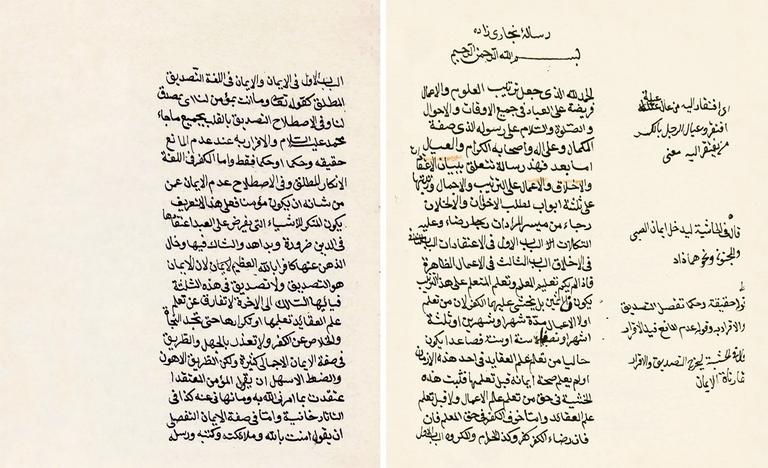 رسالة نجارى زاده
بسم الله الرحمن الرحيم
الحمد لله الذى جعل ترتيب العلوم والاعمال
فريضة على العباد فى جميع الاوقات والاحوال
والصلوة والسلام على رسوله الذى صفة
الكمال وعلى اله واصحابه الكرام والعيال
اما بعد فهذه رسالة تتعلق ببيان الاعتقاد
والاخلاق والاعمال على الترتيب والاجمال ورتبتها
على ثلثة ابواب لطلب الاخوان والاخلان
رجاء من ميسر المرادات رضاء وعليه
التكلان الباب الاول فى الاعتقادات الباب
فى الاخلاق الباب الثالث فى الاعمال الظاهرة
فاذا لم يكن تعليم المعلم وتعلم المتعلم على هذا الترتيب
يكون بل يخشى عليهما الكفر لان من تعلم
اولا الاعمال مدة شهر او شهرين او ثلثة
اشهر او نصف سنة او سنة فصاعدا يكون
خاليا من تعلم علم العقايد فى احد هذه الازمان
اولم يعلم صحة ايمانه قبل تعلمها فثبت هذه
الخشية فى حق من تعلم علم الاعمال اولا قبل تعلم
علم العقائد واما خوف الكفر فى حق المعلم فان
فان رضاء الكفر كفر وكذا الحرام والمكروه الباب
اى افتقاد اليه من عال
افتقر وعيال الرجل بالكسر
من يفتقر اليه معنى
قال فى الحاشية ليدخل ايمان الصبى
والمجنون ونحوهما
قوله حقيقة وحكما تفصل التصديق
والاقرار به وقوله عند عدم مانع قيد الاقرار
يخرج التصديق والاقرار
الايمان
الباب الاول فى الايمان والايمان فى اللغة التصديق
المطلق كقوله تعالى وما انت بمؤمن لنا اى بمصدق
لنا وفى الاصطلاح التصديق بالقلب بجميع ماجاء
محمد عليه السلام والاقرار به عند عدم المانع
حقيقه وحكما او حكما فقط واما الكفر فى اللغة
الانكار المطلق وفى الاصطلاح عدم الايمان عمن
من شانه ان يكون مؤمنا فعلى هذا التعريف
يكون المنكر للاشياء التى يفرض على العبد اعتقادها
فى الدين ضرورة وبجاهد والشاك فيها وخال
الذهن عنها كافرا بالله العظيم لان الايمان
هو التصديق ولا تصديق فى هذه الثلثة
فيا ايها السالك الى الاخرة لا تفارق عن تعلم
علم العقائد تعلمها او تكرارها حتى تجد النجاة
والخلاص عن الكفر ولا تعذر بالجهل والطريق
فى صفة الايمان الاجمالى كثيرة ولكن الطريق الاهون
والضبط الاسهل ان يقول المؤمن المعتقد
اعتقدت بما امرنى الله به ومانهانى عنه كذا فى
التاتارخانية واما فى صفة الايمان التفصلى
ان يقول امنت بالله وملائكته وكتبه ورسله